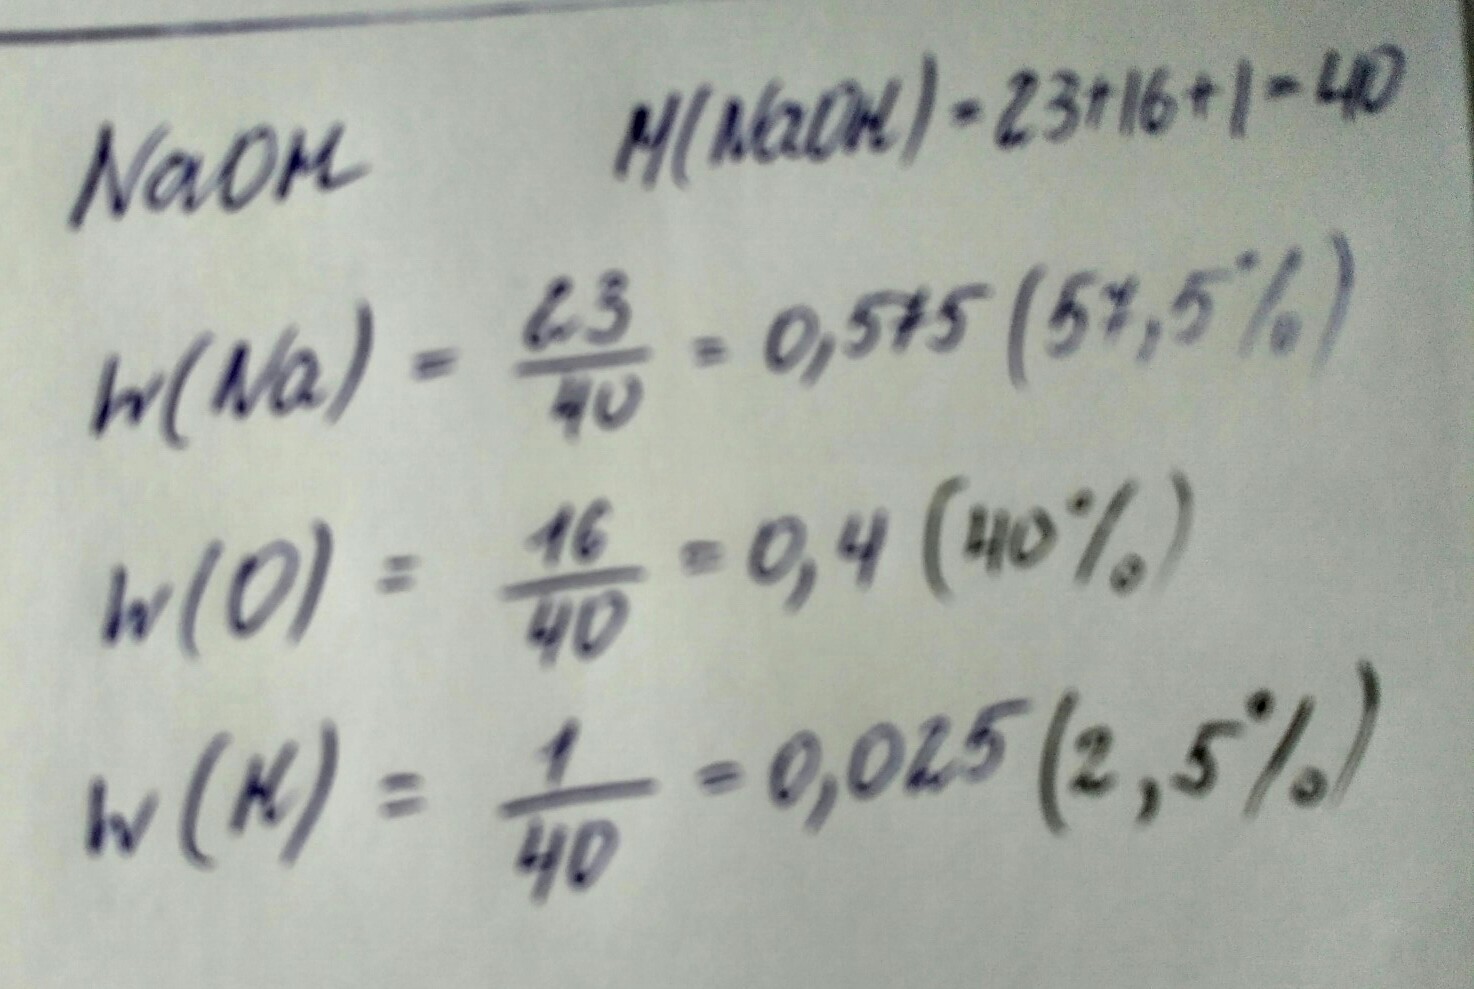 NaOH M(NaOH) = 23+16+1=40
w(Na) = 23/40 = 0,575 (57,5%)
w(O) = 16/40 = 0,4 (40%)
w(H) = 1/40 = 0,025 (2,5%)